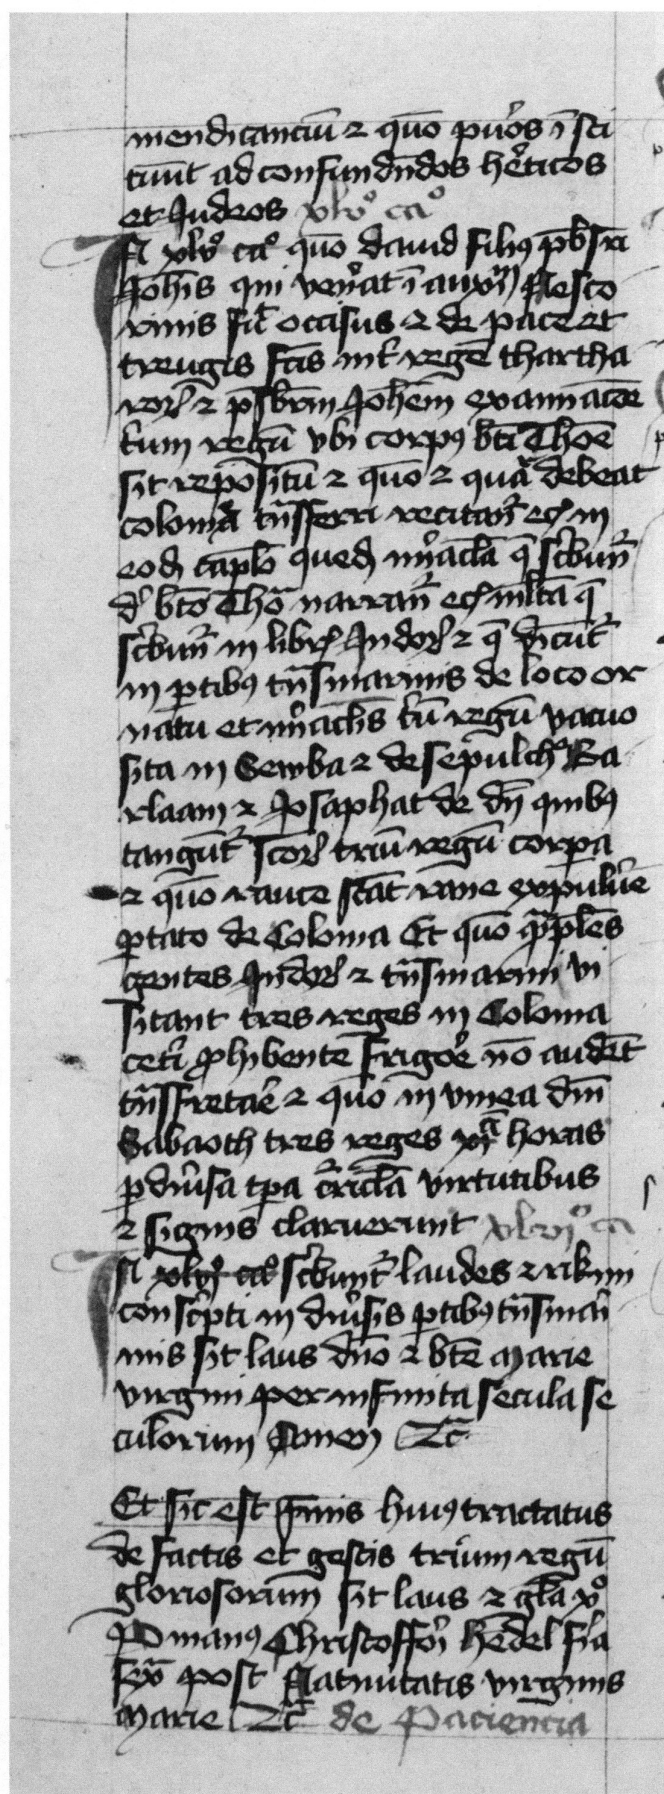 mendicanciū ⁊ quō pu'os ī sti
tuūt ad confundēdos he'ticos
et Iudeos xlv° ca°
In xlv° ca° quō dauid filiꝰ p̄bsri
Ioh̄is qui ven'at ī auxm̄ Nesto
rinis fit occisus ⁊ de pace et
treugis fc̄is int' regē thartha
roꝝ ⁊ p̄sbrm̄ Ioh̄em
trium regū vbi corpꝰ bt̄i Thōe
sit repositū ⁊ quō ⁊ quar' debeat
coloniā tn̄sferri recitant' ⁊ in
eod̄ caplō queđ mir'acl'a q̄ sc'bunt'
d' bt̄o Thō narrant' ec̄ ml̄ta q̄
sc'bunt' in libr̄ Indoꝝ ⁊ q̄ dicunt'
in ꝑtibꝰ tn̄smarinis de loco or
natu et mir'acl'is triū regū vacuo
sita in Sewba ⁊ de sepulchr° Ba
rlaam ⁊ Iosaphat de quibꝰ
tangūt' sc̄oꝝ triū regū corpa
⁊ quō expulse
ꝑtato de Colonia Et quō
gentes Indoꝝ ⁊ tn̄smarini vi
sitant tres reges in Colonia
cet'i ꝓhibente frigor'e nō audēt
tn̄sfretar'e ⁊ quō in vinea dn̄i
Sabaoth tres reges xi^a horas
ꝑ diu'sa tp̄a c'ricl'a virtutibus
⁊ signis claruerunt xlvi° ca
In xlvi° ca° sc'bunt' laudes ⁊ rikmi
consc'pti in diu'sis ꝑtibꝰ tn̄smari
nis sit laus dn̄o ⁊ bt̄e marie
virgini per infinita secula se
culorum Amen ⁊c̄
Et sic est finis huiꝰ tractatus
de factis et gestis trium regū
gloriosorum sit laus ⁊ gl'a xp̄°
P manꝰ Christoffori hendel fr̄ia
sexta post Natiuitatis virginis
marie ⁊c̄ de Paciencia